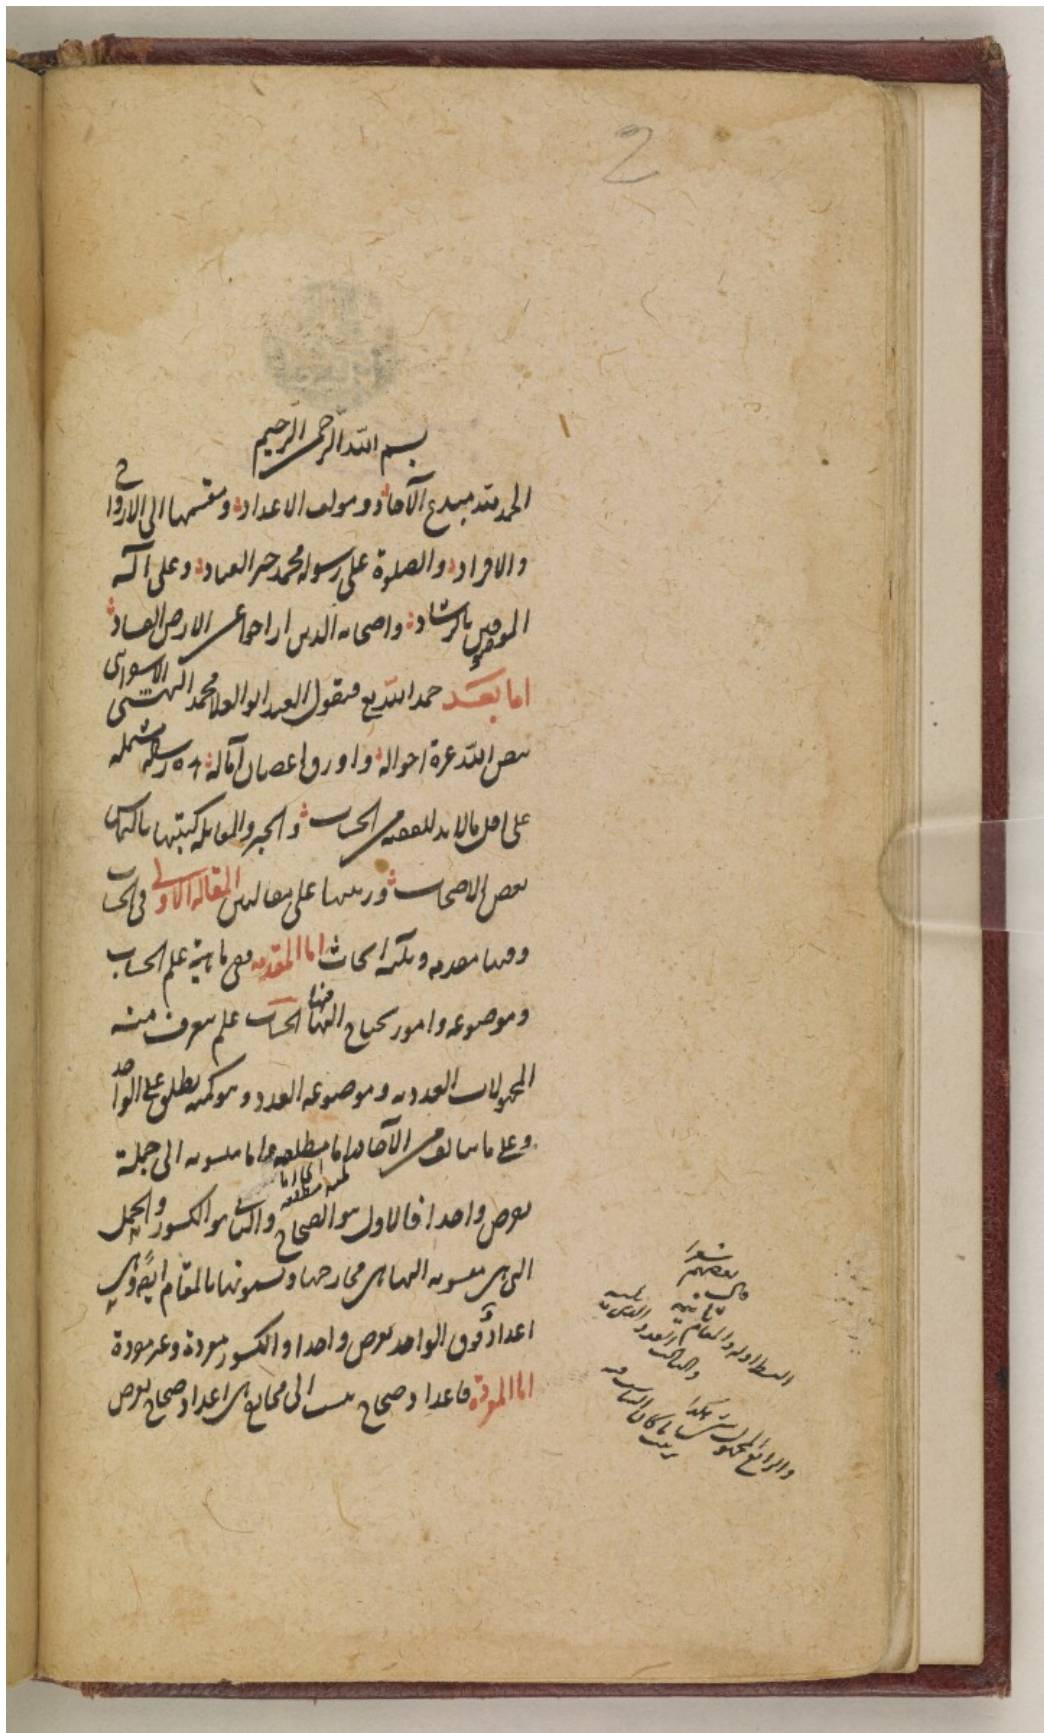 2
بسم الله الرحمن الرحيم
الحمد لله مبدع الآحاد ومولف الاعداد ومقسمها الى الازواج
والافراد والصلوة على رسوله محمد خير العباد وعلى آله
الموصوفين بالرشاد واصحابه الذين ازاحوا عن الارض الفساد
اما بعد حمد الله تع فيقول العبد ابو العلا محمد البهشتى الاسفراينى
بيض الله غرة احواله واورق اغصان آماله هذه رسالة مشتملة
على اقل ما لا بد للفقيه من الحساب والجبر والمقابلة كتبتها بالتماس
بعض الاصحاب ورتبتها على مقالتين المقالة الاولى فى الحساب
وفيها مقدمه وثلثه ابحاث اما المقدمه ففى ماهية علم الحساب
وموضوعه وامور يحتاج اليها فيها الحساب علم يتعرف منه
المجهولات العدديه وموضوعه العدد وهو كميه يطلق على الواحد
وعلى ما يتالف من الآحاد اما مطلقه واما منسوبه الى جملة
يفرض واحدا فالاول هو الصحاح والثانى هو الكسور والجمل
التى هى منسوبه اليها هى مخارجها ويسمونها بالمقام ايضا وهى
اعداد فوق الواحد يفرض واحدا والكسور مفردة وغير مفردة
اما المفردة فاعداد صحاح ينسب الى مخارج هى اعداد صحاح يفرض
بعضهم
البسط اوله والمقام ثانيه
والثالث العدد
والرابع المجهول